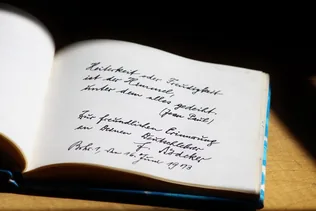 Heiterkeit oder Freudigkeit
ist der Himmel,
unter dem alles gedeiht.
(Jean Paul)
Zur freundlichen Erinnerung
an Deinen Deutschlehrer
F. Rödeker
den 16. Juni